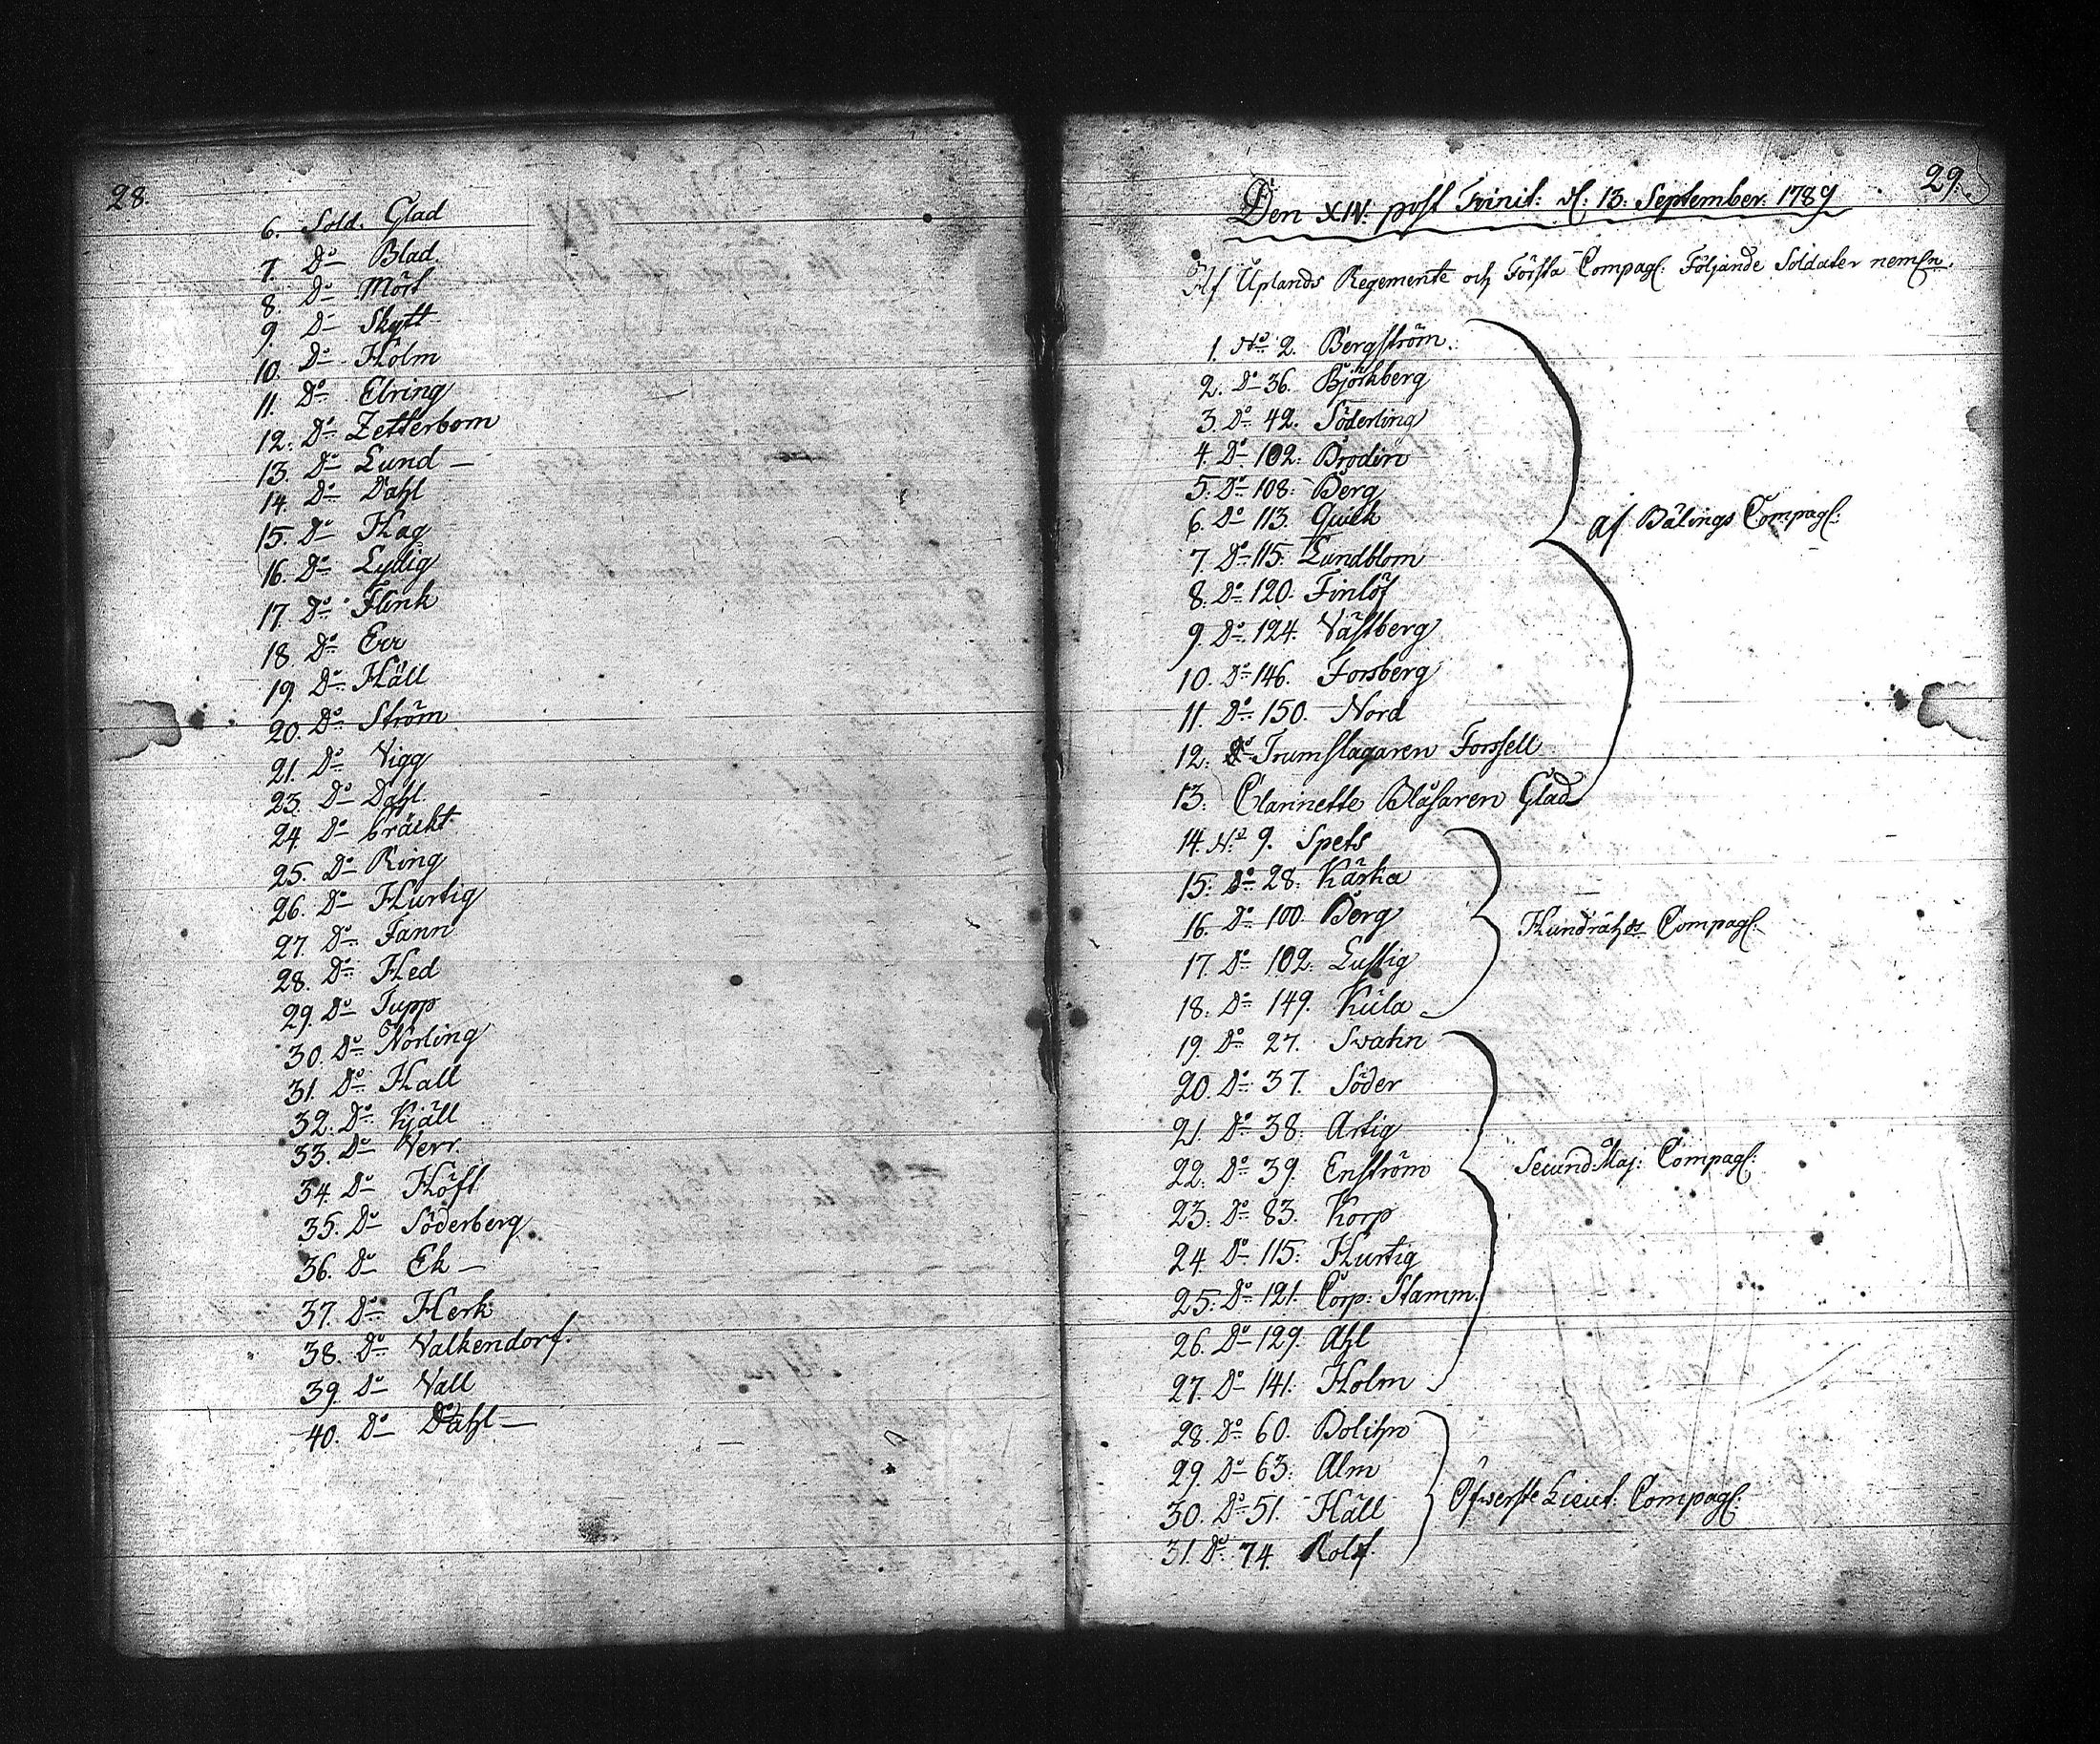 28.
6. Sold. Glad
7. Do Blad.
8. Do Mört
9. Do Skytt
10. Do Holm
11. Do Elring
12. Do Zetterbom
13. Do Lund —
14. Do Dahl
15. Do Hag
16. Do Lydig
17. Do Flink
18. Do Err
19. Do Häll
20. Do Ström
21. Do Vigg
23. Do Dahl.
24. Do bräckt
25. Do Ring
26. Do Hurtig
27. Do Fann
28. Do Hed
29. Do Tupp
30. Do Norling
31. Do Hall
32. Do Kjäll
33. Do Verr.
34. Do Höft
35. Do Söderberg
36. Do Ek —
37. Do Herk
38. Do Valkendorf.
39. Do Vall
40. Do Dahl —
29.
Den XIV: post Trinit: d: 13: September 1789
Af Uplands Regemente och Första Compagl: Följande Soldater nemln.
1. No 2. Bergström.
2. Do 36. Björkberg
3. Do 42. Söderling
4. Do 102: Brodin
5. Do 108: Berg
6. Do 113. Quick
7. Do 115. Lundblom
8. Do 120. Finlöf
9. Do 124. Västberg
10. Do 146. Forsberg
11. Do 150. Nord
12. Trumslagaren Forssell
13. Clarinette Blåsaren Glad
af Bälings Compagl:
14. No 9. Spets
15. Do 28. Karka
16. Do 100. Berg
17. Do 102. Lustig
18. Do 149. Kula
Hundrahds Compagl:
19. Do 27. Svahn
20. Do 37. Söder
21. Do 38. Artig
22. Do 39. Enström
23. Do 83. Korp
24. Do 115: Hurtig
25. Do 121. Corp: Stamm.
26. Do 129. Ahl
27. Do 141. Holm
Secund: Maj: Compagl:
28. Do 60.
29. Do 63: Alm
30. Do 51. Häll
31. Do 74. Rolf.
Öfwerste Lieut: Compagl: